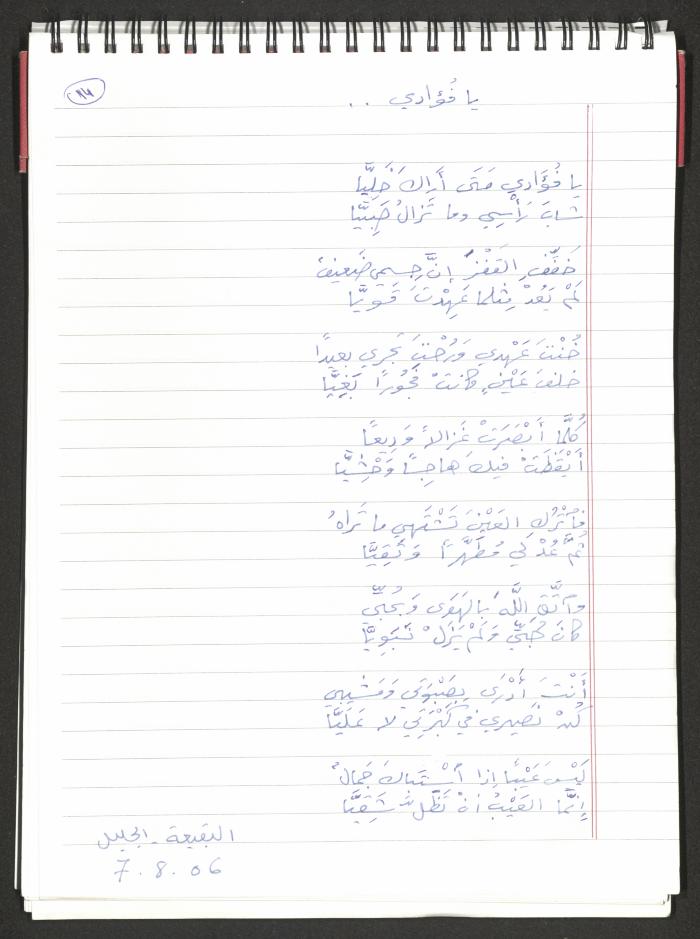 ١٤
يا فُؤادي . .
يا فُؤَادي مَتَى أَراكَ خَلِيَّا
شابَ رَأْسِي وما تَزالُ صَبِيَّا
خَفِّفِ القَفْزَ إنَّ جِسمي ضَعيفٌ
لَمْ يَعُدْ مِثلما عَهِدْتَ قَوِيَّا
خُنْتَ عَهْدي وَرُحْتَ تَجري بعيدًا
خلفَ عَيْنٍ كانتْ فُجُورًا بَغِيَّا
كُلَّما أَبْصَرَتْ غَزالاً وَدِيعًا
أَيْقَظَتْ فيكَ هاجِسًا وَحْشِيَّا
فاتْرُكِ العَيْنَ تَشْتَهي ما تَراهُ
ثُمَّ عُدْ لي مُطَهَّرًا وَنَقِيَّا
واتَّقِ اللَّهَ بالهَوَى وَبحُبِّي
كانَ حُبِّي وَلَمْ يَزَلْ نَبَوِيَّا
أَنْتَ أَدْرَى بِصَبْوَتي وَمَشيبي
كُنْ نَصيري في كَبْرَتي لا عَلَيَّا
لَيْسَ عَيْبًا إذا اسْتَباكَ جَمالٌ
إنَّما العَيْبُ أنْ تَظَلَّ شَقِيَّا
البقيعة - الجليل
7 . 8 . 06